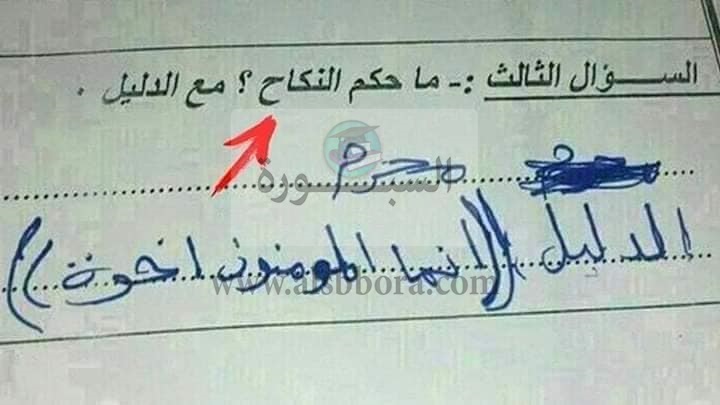 الســـؤال الثالث :- ما حكم النكاح ؟ مع الدليل .
محرم
السبورة
الدليل ((انما المومنون اخوة))
www.alsbbora.com